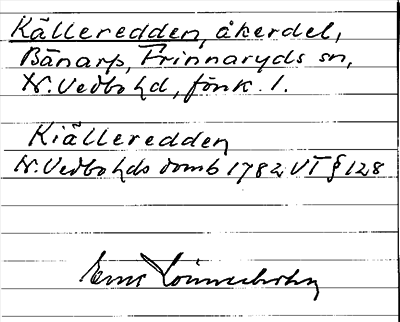 Källeredden, åkerdel,
Bänarp, Frinnaryds sn,
N. Vedbo hd, Jönk. l.
Kiälleredden
N. Vedbo hds domb 1782 VT § 128